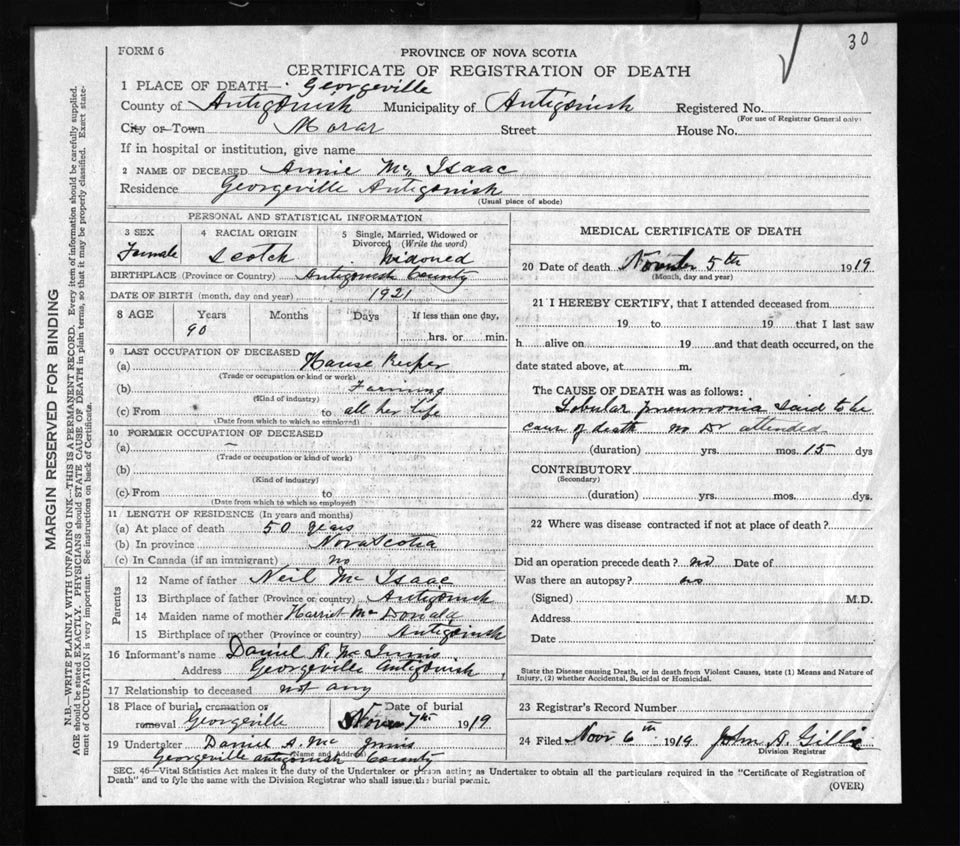 30
FORM 6
PROVINCE OF NOVA SCOTIA
CERTIFICATE OF REGISTRATION OF DEATH
1 PLACE OF DEATH— Georgeville
County of Antigonish Municipality of Antigonish Registered No.
(For use of Registrar General only)
City or Town Morar Street House No.
If in hospital or institution, give name
2 NAME OF DECEASED Annie Mc Isaac
Residence Georgeville Antigonish
(Usual place of abode)
PERSONAL AND STATISTICAL INFORMATION
3 SEX 4 RACIAL ORIGIN 5 Single, Married, Widowed or
Divorced (Write the word)
Female Scotch Widowed
BIRTHPLACE (Province or Country) Antigonish County
DATE OF BIRTH (month, day and year) 1921
8 AGE Years Months Days If less than one day,
90 hrs. or min.
9 LAST OCCUPATION OF DECEASED
(a) House Keeper
(Trade or occupation or kind or work)
(b) Farming
(Kind of industry)
(c) From to all her life
(Date from which to which so employed)
10 FORMER OCCUPATION OF DECEASED
(a) —
(Trade or occupation or kind of work)
(b)
(Kind of industry)
(c) From to
(Date from which to which so employed)
11 LENGTH OF RESIDENCE (In years and months)
(a) At place of death 50 years
(b) In province Nova Scotia
(c) In Canada (if an immigrant) no
Parents
12 Name of father Neil Mc Isaac
13 Birthplace of father (Province or country) Antigonish
14 Maiden name of mother Harriet Mc Donald
15 Birthplace of mother (Province or country) Antigonish
16 Informant's name Daniel A. Mc Innis
Address Georgeville Antigonish
17 Relationship to deceased not any
18 Place of burial, cremation or Date of burial
removal Georgeville Nov 7th 1919
19 Undertaker Daniel A. Mc Innis
(Name and Address)
Georgeville antigonish County
MEDICAL CERTIFICATE OF DEATH
20 Date of death November 5th 1919
(Month, day and year)
21 I HEREBY CERTIFY, that I attended deceased from
19 to 19 that I last saw
h alive on 19 and that death occurred, on the
date stated above, at m.
The CAUSE OF DEATH was as follows:
Lobular pneumonia said to be
cause of death no Dr attended
(duration) yrs. mos. 15 dys
CONTRIBUTORY
(Secondary)
(duration) yrs. mos. dys.
22 Where was disease contracted if not at place of death?
Did an operation precede death? no Date of
Was there an autopsy? no
(Signed) M.D.
Address
Date
State the Disease causing Death, or in death from Violent Causes, state (1) Means and Nature of
Injury, (2) whether Accidental, Suicidal or Homicidal.
23 Registrar's Record Number
24 Filed Nov 6th 1919 John A. Gillis
Division Registrar
SEC. 46—Vital Statistics Act makes it the duty of the Undertaker or person acting as Undertaker to obtain all the particulars required in the "Certificate of Registration of
Death" and to file the same with the Division Registrar who shall issue the burial permit.
(OVER)
MARGIN RESERVED FOR BINDING
N.B.—WRITE PLAINLY WITH UNFADING INK—THIS IS A PERMANENT RECORD. Every item of information should be carefully supplied.
AGE should be stated EXACTLY. PHYSICIANS should STATE CAUSE OF DEATH in plain terms, so that it may be properly classified. Exact state-
ment of OCCUPATION is very important. See instructions on back of Certificate.